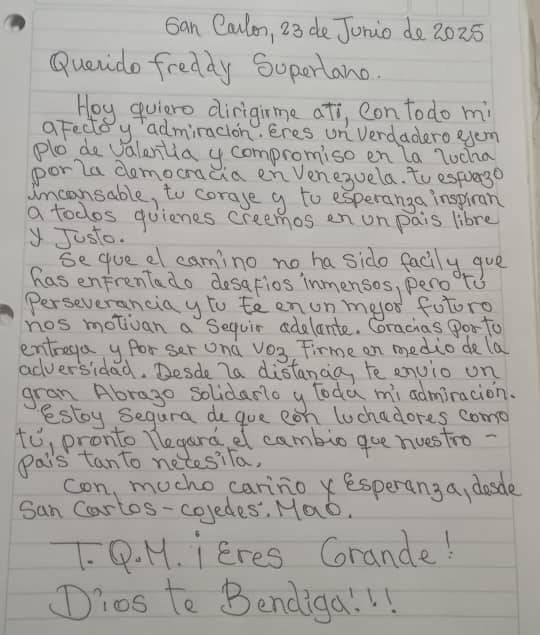 San Carlos, 23 de Junio de 2025
Querido freddy Superlano.
Hoy quiero dirigirme a ti, Con todo mi
aFecto y admiración. Eres un verdadero ejem
plo de valentia y compromiso en la lucha
por la democracia en Venezuela. tu esfuerzo
incansable, tu coraje y tu esperanza inspiran
a todos quienes creemos en un pais libre
y Justo.
Se que el camino no ha sido facil y que
has enfrentado desafios inmensos, pero tu
Perseverancia y tu fe en un mejor futuro
nos motivan a seguir adelante. Gracias por tu
entrega y por ser una voz firme en medio de la
adversidad. Desde la distancia, te envio un
gran Abrazo Solidario y toda mi admiración.
Estoy Segura de que con luchadores como
tú, pronto llegará el cambio que nuestro -
país tanto necesita.
Con, mucho cariño y Esperanza, desde
San Carlos - cojedes. Mao.
T.Q.M. ¡ Eres Grande!
Dios te Bendiga!!!